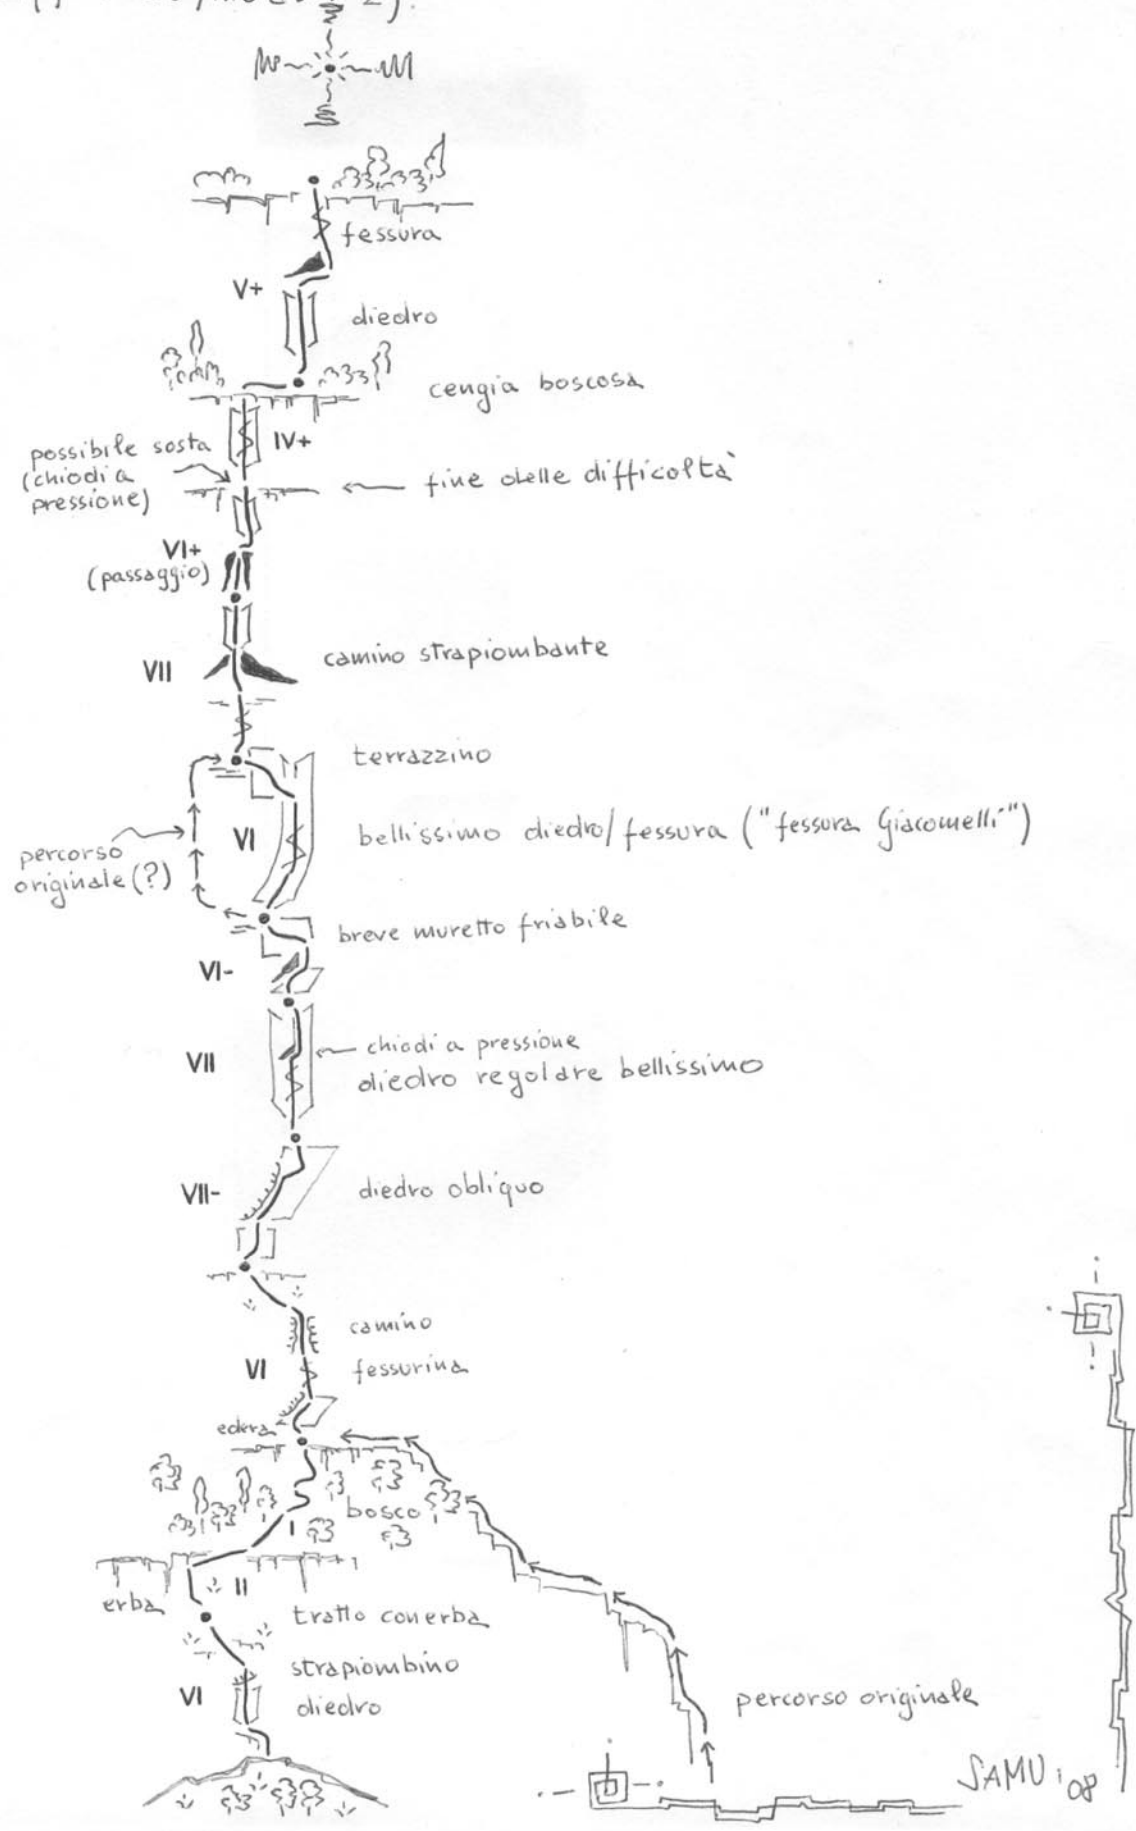 fessura
V+
diedro
cengia boscosa
IV+
possibile sosta
(chiodi a
pressione)
fine delle difficoltà
VI+
(passaggio)
VII
camino strapiombante
terrazzino
VI
bellissimo diedro/fessura ("fessura Giacomelli")
percorso
originale (?)
breve muretto friabile
VI-
chiodi a pressione
VII
diedro regolare bellissimo
VII-
diedro obliquo
camino
VI
fessurina
edera
bosco
II
erba
tratto con erba
strapiombino
VI
diedro
percorso originale
SAMU '08